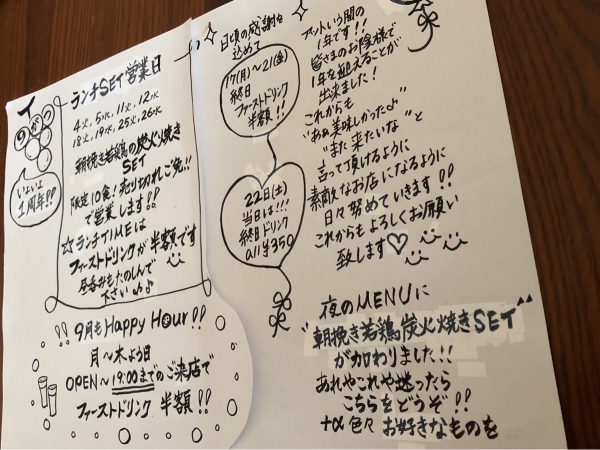 ランチSET営業日
4火,5水,11火,12水
18火,19水,25火,26水
朝挽き若鶏の炭火焼き
SET
限定10食!売り切れご免!!
で営業します!!
☆ランチTIMEは
ファーストドリンクが半額です
昼呑みもたのしんで
下さい♪♪
いよいよ
1周年!!
!!9月もHappy Hour!!
月〜木よう日
OPEN〜19:00までのご来店で
ファーストドリンク 半額!!
日頃の感謝を
込めて
17(月)〜21(金)
終日
ファーストドリンク
半額!!
22日(土)
当日は!!!
終日ドリンク
all¥350
アットいう間の
1年です!!
皆さまのお陰様で
1年を迎えることが
出来ました!
これからも
"あぁ美味しかった♪"
"また来たいな"と
言って頂けるように
素敵なお店になるように
日々努めていきます!!
これからもよろしくお願い
致します♡
夜のMENUに
"朝挽き若鶏炭火焼きSET"
が加わりました!!
あれやこれや迷ったら
こちらをどうぞ!!
+α色々お好きなものを